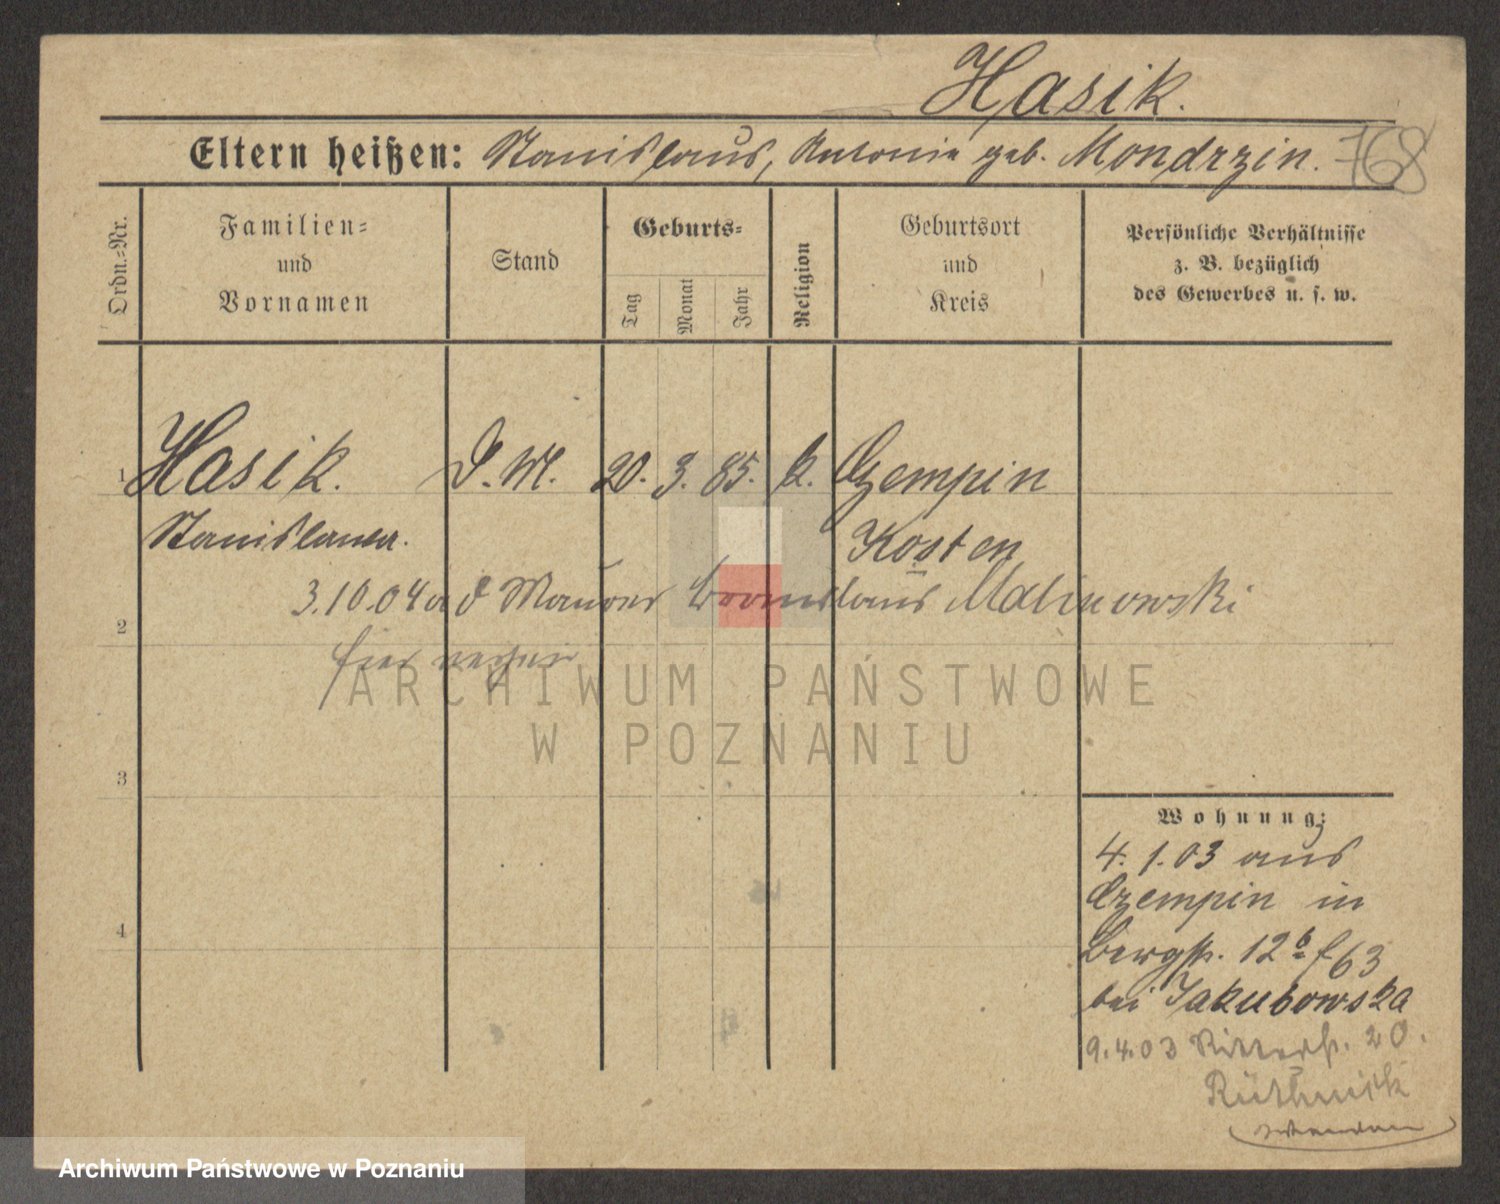 Hasik.
Eltern heißen: Stanislaus, Antonie geb. Mondrzin. 768
Ordn.=Nr.
Familien=
und
Vornamen
Stand
Geburts=
Tag
Monat
Jahr
Religion
Geburtsort
und
Kreis
Persönliche Verhältnisse
z. B. bezüglich
des Gewerbes u. s. w.
1 Hasik. D. M. 20. 3. 85. k. Czempin
Stanislawa. Kosten
3.10.04 a d Maurer Bronislaus Malinowski
2
hier
ARCHIWUM PAŃSTWOWE
W POZNANIU
3
Wohnung:
4. 1. 03 aus
Czempin in
4
Bergstr. 12b f 63
bei Jakubowska
9.4.03 Ritterstr. 20.
wenden
Archiwum Państwowe w Poznaniu